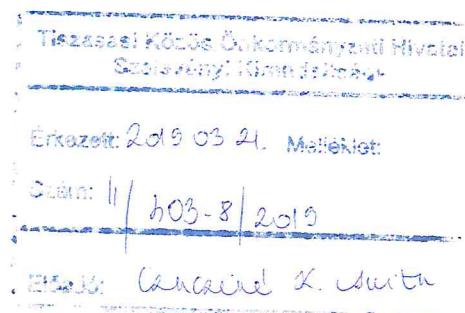 Tiszasasi Közös Önkormányzati Hivatal
Szelevényi Kirendeltsége
Érkezett: 2019 03 21. Melléklet:
Szám: II/403-8/2019
Előadó: K. Anita